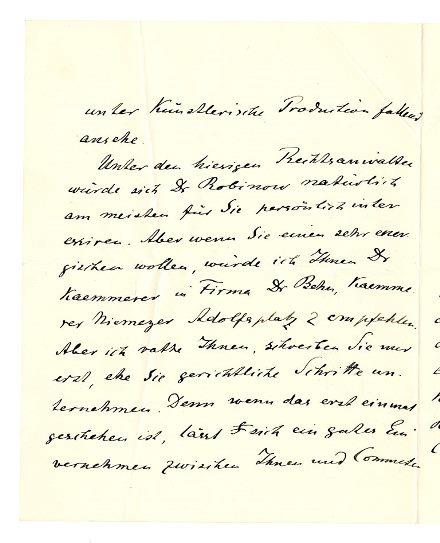 unter Künstlerische Production fallend
ansehe.
Unter den hiesigen Rechtsanwälten
würde sich Dr Robinow natürlich
am meisten für Sie persönlich inter
essiren. Aber wenn Sie einen sehr ener
gischen wollen, würde ich Ihnen Dr
Kaemmerer in Firma Dr Behn, Kaemme
rer Niemeyer Adolfsplatz 2 empfehlen.
Aber ich rathe Ihnen, schreiben Sie nur
erst, ehe Sie gerichtliche Schritte un-
ternehmen. Denn wenn das erst einmal
geschehen ist, lässt sich ein gutes Ein
vernehmen zwischen Ihnen und Commeter